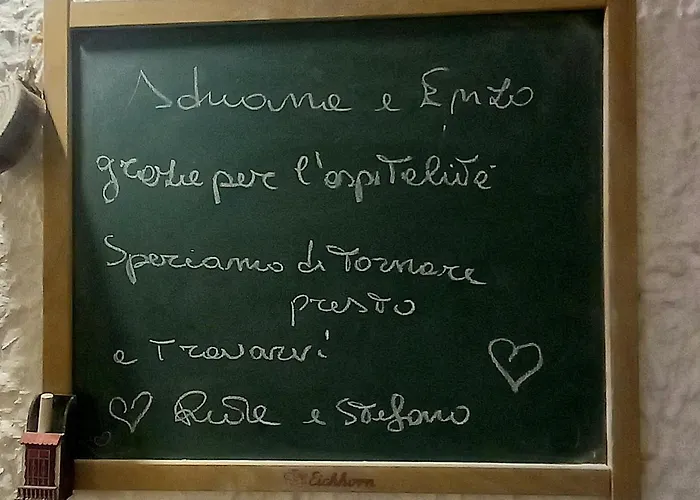 Adriana e Enzo
grazie per l'ospitalità
Speriamo di tornare
presto
e Trovarvi
Rute e Stefano
Eichhorn